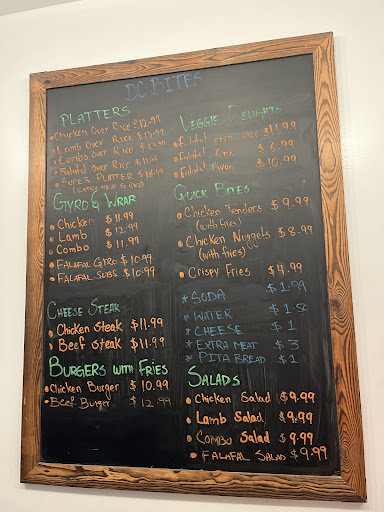 D.C. BITES
PLATTERS
Chicken Over Rice $12.99
Lamb Over Rice $13.99
Combo Over Rice $13.99
Falafal Over Rice $11.99
Super Platter $18.99
(Extra Meat & Rice)
Gyro & Wrap
Chicken $11.99
Lamb $12.99
Combo $11.99
Falafal Gyro $10.99
Falafal Subs $10.99
Cheese Steak
Chicken Steak $11.99
Beef Steak $11.99
Burgers with Fries
Chicken Burger $10.99
Beef Burger $12.99
Veggie Delights
Falafal over rice $11.99
Falafal $6.99
Falafal $10.99
Quick Bites
Chicken Tenders $9.99
(with fries)
Chicken Nuggets $8.99
(with fries)
Crispy Fries $4.99
* SODA $1.99
* WATER $1.50
* CHEESE $1
* EXTRA MEAT $3
* PITA BREAD $1
SALADS
Chicken Salad $9.99
Lamb Salad $9.99
Combo Salad $9.99
FALAFAL SALAD $9.99